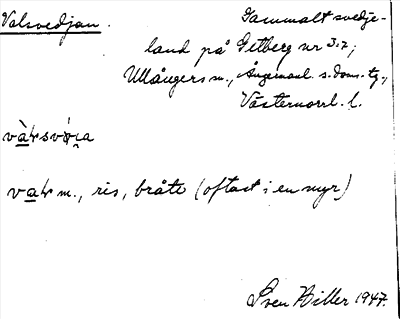 Valsvedjan. Gammalt svedje-
land på Getberg nr 3:7,
Ullångers sn., Ångermanl. s. doms. tg.,
Västernorrl. l.
m., ris, bråte (oftast i en myr)
Sven Hiller 1947.